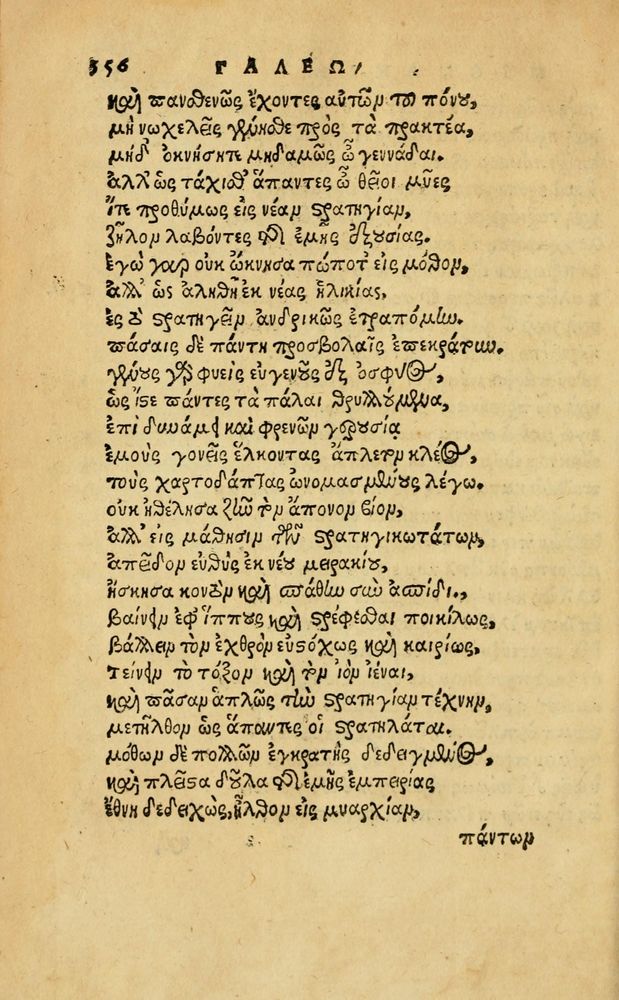 356 ΓΑΛΕΩ,
καὶ πανσθενῶς ἔχοντες αὐτῶν τοῦ πόνου,
μὴ νωχελεῖς γίνοισθε πρὸς τὰ πρακτέα,
μηδ' ὀκνήσητε μηδαμῶς ὦ γεννάδαι.
ἀλλ' ὡς τάχισθ' ἅπαντες ὦ θεῖοι μῦες
ἴτε προθύμως εἰς νέαν στρατηγίαν,
ζῆλον λαβόντες τῆς ἐμῆς ἐξουσίας.
ἐγὼ γὰρ οὐκ ὤκνησα πώποτ' εἰς μόθον,
ἀλλ' ὡς ἀληθῆ ἐκ νέας ἡλικίας,
ἐς τὸ στρατηγεῖν ἀνδρικῶς ἐτραπόμην.
πάσαις δὲ πάντη προσβολαῖς ἐπεκράτουν.
γένους γὰρ φυεὶς εὐγενοῦς ἐξ ὀσφύος,
ὡς ἴστε πάντες τὰ πάλαι θρυλλούμενα,
ἐπὶ δυνάμει καὶ φρενῶν γερουσίᾳ
ἐμοὺς γονεῖς ἕλκοντας ἄπλετον κλέος,
τοὺς χαρτοδάπτας ὠνομασμένους λέγω.
οὐκ ἠθέλησα ζῆν τὸν ἄπονον βίον,
ἀλλ' εἰς μάθησιν τῶν στρατηγικωτάτων,
ἀπεῖδον εὐθὺς ἐκ νέου μειρακίου,
ἤσκησα κονδὸν καὶ σπάθην σὺν ἀσπίδι.,
βαίνειν ἐφ' ἵππους καὶ στρέφεσθαι ποικίλως,
βάλλειν τὸν ἐχθρὸν εὐστόχως καὶ καιρίως,
τείνειν τὸ τόξον καὶ τὸν ἰὸν ἱέναι,
καὶ πᾶσαν ἁπλῶς τὴν στρατηγίαν τέχνην,
μετῆλθον ὡς ἅπαντες οἱ στρατηλάται.
μόθων δὲ πολλῶν ἐγκρατὴς δεδειγμένος,
καὶ πλεῖστα δοῦλα τῆς ἐμῆς ἐμπειρίας
ἔθνη δεδειχώς, ἦλθον εἰς μυαρχίαν,
πάντων